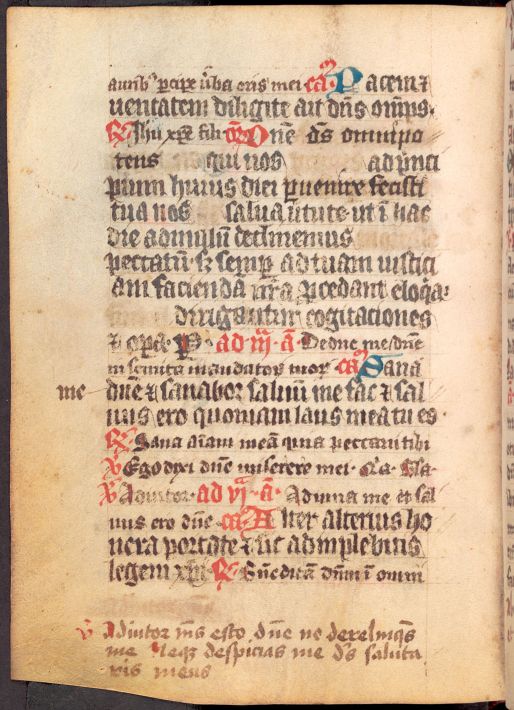 aurib⁹ pcipe ūba oris mei ca᷒ Pacem ⁊
ueritatem diligite ait dn̄s om̄ps·
R Ihu xpe fili or̄o Dne ds omnipo
tens qui nos ad princi
pium huius diei puenire fecisti
tua nos salua uirtute· ut ī hac
die ad nullū declinemus
peccatū· sꝫ semp ad tuam iustici
am faciendā nr̄a pcedant eloqia·
dirigantur cogitationes
⁊ opa· p· ad iij· a· Deduc me dn̄e
in semita mandatoꝝ tuoꝝ ca᷒ Sana
me dn̄e ⁊ sanabor saluū me fac ⁊ sal
uus ero quoniam laus mea tu es·
R Sana aīam meā quia peccaui tibi
V Ego dixi dn̄e miserere mei· Gla·
V Adiutor· ad vj· a· Adiuua me et sal
uus ero dn̄e ca᷒ Alter alterius ho
nera portate ⁊ sic adimplebitis
legem xpi R Bn̄edicā dn̄m ī omni
V Adiutor ms esto dn̄e ne derelinqs
me neqꝫ despicias me ds saluta
ris meus